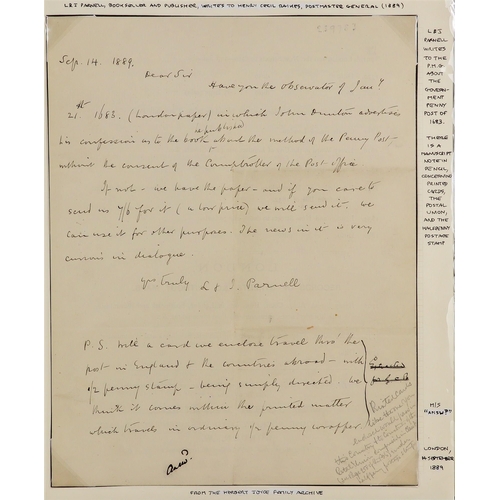 L & J PARNELL, BOOKSELLER AND PUBLISHER, WRITES TO HENRY CECIL RAIKES, POSTMASTER GENERAL (1889)
Sep. 14. 1889.
Dear Sir
Have you the Observator of Jany
21st 1683. (London paper) in which John Dunton advertises
his confession as to the book republished about the method of the Penny Post -
without the consent of the Comptroller of the Post Office.
If not - we have the paper - and if you care to
send us 7/6 for it (a low price) we will send it, we
can use it for other purposes. The news in it is very
curious in dialogue.
Yrs truly L & J. Parnell
P.S. Will a card we enclose travel thro' the
post in England & the countries abroad - with
½ penny stamp - being simply directed, we
think it comes within the printed matter
which travels in ordinary ½ penny wrapper.
Answd.
Printed cards
L & J
PARNELL
WRITES
TO THE
P.M.G.
ABOUT
THE
GOVERN-
MENT
PENNY
POST OF
1683.
THERE
IS A
MANUSCRIPT
NOTE IN
PENCIL,
CONCERNING
PRINTED
CARDS,
THE
POSTAL
UNION,
AND THE
HALFPENNY
POSTAGE
STAMP
M/S
"ANSWD"
LONDON,
14 SEPTEMBER
1889
FROM THE HERBERT JOYCE FAMILY ARCHIVE